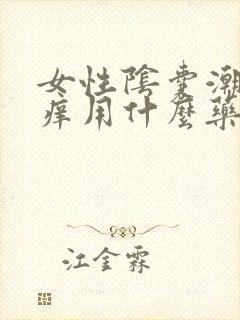 女性陰囊潮
痒用什麼藥
江金霖